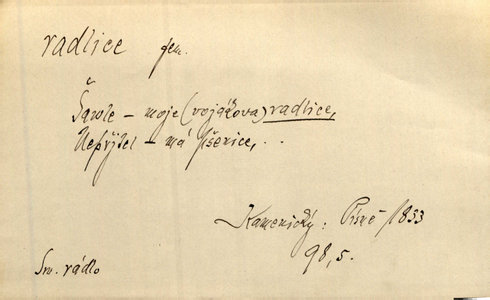 radlice fem.
Šavle – moje (vojákova) radlice,
Nepřítel – má pšenice, . .
Kamenický: Písně 1833
98, 5.
Srv. rádlo